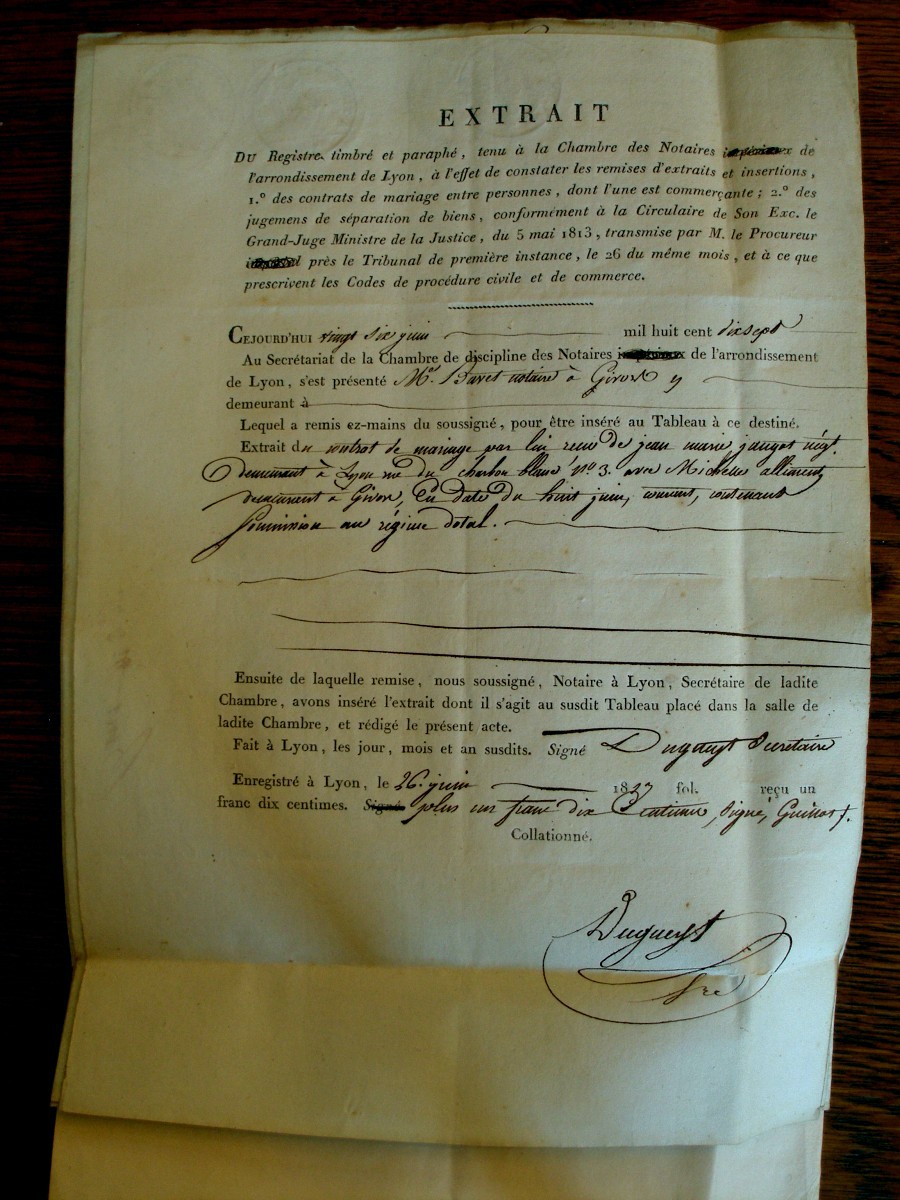 EXTRAIT
DU Registre timbré et paraphé, tenu à la Chambre des Notaires impériaux de
l'arrondissement de Lyon, à l'effet de constater les remises d'extraits et insertions,
1.º des contrats de mariage entre personnes, dont l'une est commerçante; 2.º des
jugemens de séparation de biens, conformément à la Circulaire de Son Exc. le
Grand-Juge Ministre de la Justice, du 5 mai 1813, transmise par M. le Procureur
impérial près le Tribunal de première instance, le 26 du même mois, et à ce que
prescrivent les Codes de procédure civile et de commerce.
CEJOURD'HUI vingt six juin mil huit cent dix sept
Au Secrétariat de la Chambre de discipline des Notaires impériaux de l'arrondissement
de Lyon, s'est présenté Me. notaire à Givors y
demeurant à
Lequel a remis ez-mains du soussigné, pour être inséré au Tableau à ce destiné.
Extrait du contrat de mariage par lui recu de jean marie négt.
demeurant à Lyon rue du charbon blanc nº 3. avec Michelle
demeurant à Givors, En date du huit juin, courant, contenant
soumission au régime dotal.
Ensuite de laquelle remise, nous soussigné, Notaire à Lyon, Secrétaire de ladite
Chambre, avons inséré l'extrait dont il s'agit au susdit Tableau placé dans la salle de
ladite Chambre, et rédigé le présent acte.
Fait à Lyon, les jour, mois et an susdits. Signé Dugueyt Secretaire
Enregistré à Lyon, le 26. juin fol. reçu un
franc dix centimes. Signé plus un franc dix Centimes, Signé, Guinot
Collationné.
Dugueyt
Sre